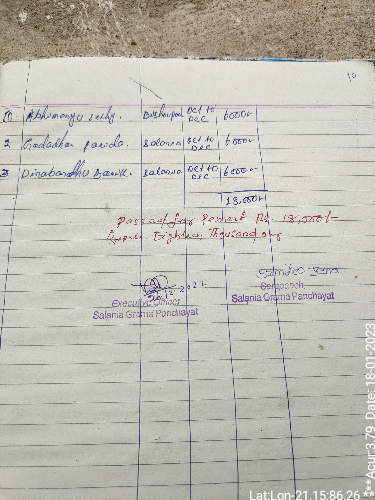 10
1. Abhimanyu Sethy. Bishnupur Oct to Dec 6000/-
2 Gadadhar Oct to Dec 6000/-
Salania
3 Dinabandhu Salania Oct to Dec 6000/-
18,000/-
Passed for Rs. 18,000/-
Eighteen Thousand only
Executive Officer
Salania Grama Panchayat
Sarapanch
Salania Grama Panchayat
Lat:Lon-21.15:86.26 ***Acur:3.79 Date: 18-01-2023